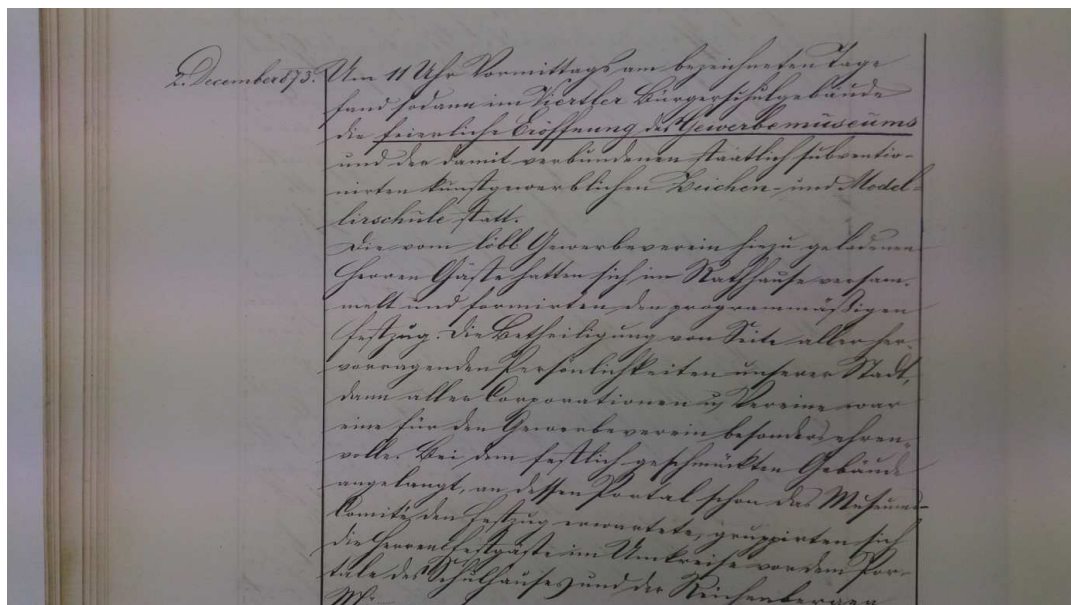 2. December 873. Um 11 Uhr Vormittags am bezeichneten Tage
fand sodann im Viertler Bürgerschulgebäude
die feierliche Eröffnung des Gewerbemuseums
und der damit verbundenen staatlich subventio-
nirten kunstgewerblichen Zeichen- und Model-
lirschule statt.
Die vom löbl. Gewerbeverein hiezu geladenen
Herren Gäste hatten sich im Rathhause versam-
melt und formirten den programmmäßigen
Festzug. Die Betheiligung von Seite aller her-
vorragenden Persönlichkeiten unserer Stadt,
dann aller Corporationen u. Vereine war
eine für den Gewerbeverein besonders ehren-
volle. Bei dem festlich geschmückten Gebäude
angelangt, an dessen Portal schon das Museums-
Comité den Festzug erwartete, gruppirten sich
die Herren Festgäste im Umkreise vor dem Por-
tale des Schulhauses und der Reichenberger